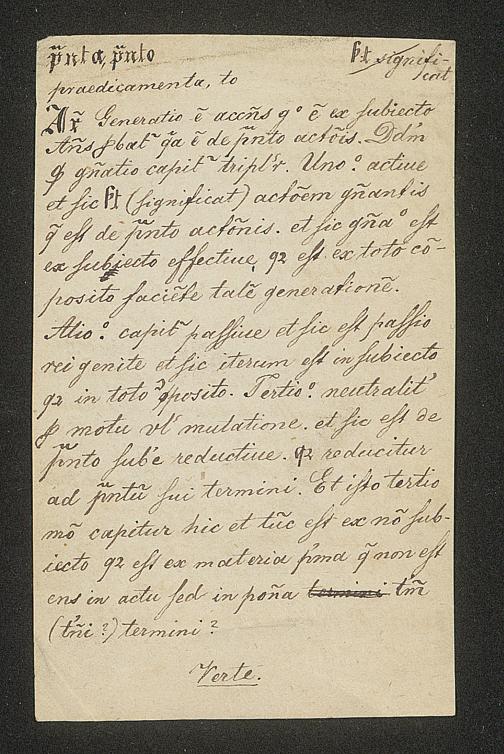 p̄nta, p̄nto
ſt signifi-
cat
praedicamenta, to
Ar̄ Generatio ē accn̄s qº ē ex subiecto
An̄s ꝓbat˜ q̄a ē de p̄nto actōis. Dd'm
ꝙ gn̄atio capit˜ tripl'r. Uno.º actiue
et sic ſt (significat) actōem gn̄antis
q̄ est de p̄nto actōnis. et sic gn̄aº est
ex subiecto effectiue, qꝫ est ex toto cō-
posito faciēte talē generationē.
Alio.º capit˜ passiue et sic est passio
rei genite et sic iterum est in subiecto
qꝫ in toto ꝯposito. Tertio.º neutralit'
ꝓ motu vl' mutatione. et sic est de
p̄nto sub'e reductiue. qꝫ reducitur
ad p̄ntū sui termini. Et isto tertio
mō capitur hic et tūc est ex nō sub-
iecto qꝫ est ex materia p'ma q̄ non est
ens in actu sed in poña termini t'm̄
(t'ñi ?) termini ?
Verte.